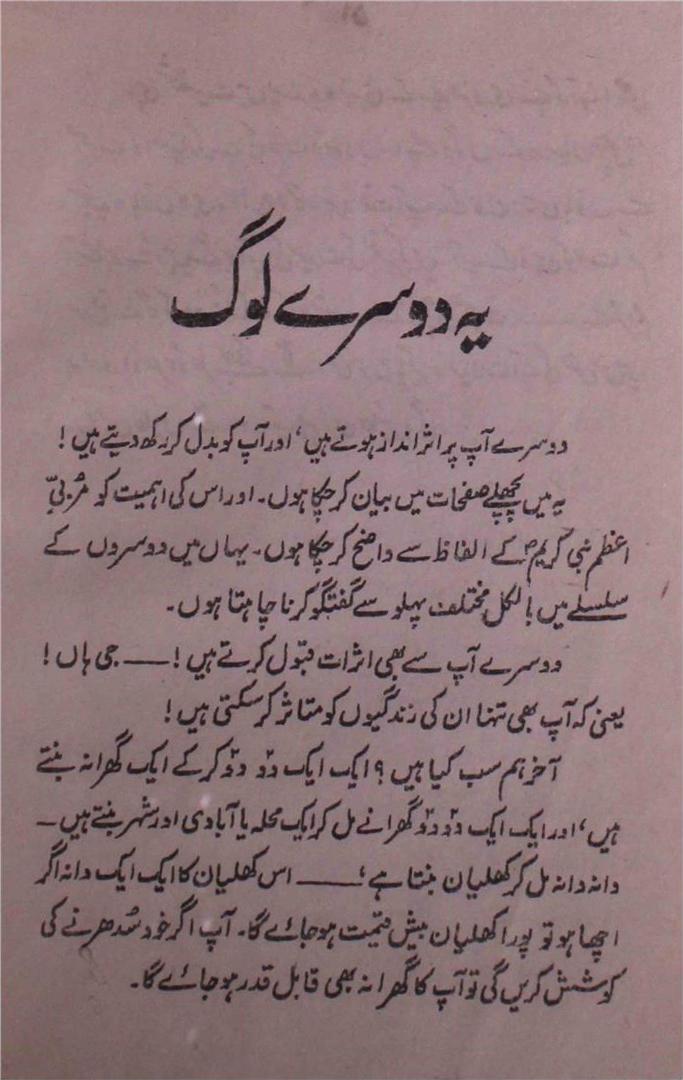 یہ دوسرے لوگ
دوسرے آپ پر اثر انداز ہوتے ہیں، اور آپ کو بدل کر رکھ دیتے ہیں!
یہ میں پچھلے صفحات میں بیان کر چکا ہوں۔ اور اس کی اہمیت کو مُربیِّ
اعظم نبی کریمؐ کے الفاظ سے واضح کر چکا ہوں۔ یہاں میں دوسروں کے
سلسلے میں بالکل مختلف پہلو سے گفتگو کرنا چاہتا ہوں۔
دوسرے آپ سے بھی اثرات قبول کرتے ہیں! ـــ جی ہاں!
یعنی کہ آپ بھی تنہا ان کی زندگیوں کو متاثر کر سکتی ہیں!
آخر ہم سب کیا ہیں؟ ایک ایک دو دو کر کے ایک گھرانہ بنتے
ہیں، اور ایک ایک دو دو گھرانے مل کر ایک محلہ یا آبادی اور شہر بنتے ہیں۔
دانہ دانہ مل کر کھلیان بنتا ہے! ـــــ اس کھلیان کا ایک ایک دانہ اگر
اچھا ہو تو پورا کھلیان بیش قیمت ہو جائے گا۔ آپ اگر خود سُدھرنے کی
کوشش کریں گی تو آپ کا گھرانہ بھی قابل قدر ہو جائے گا۔